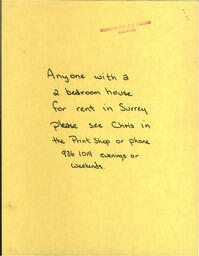 Anyone with a
2 bedroom house
for rent in Surrey
please see Chris in
the Print Shop or phone
936 1019 evenings or
weekends.